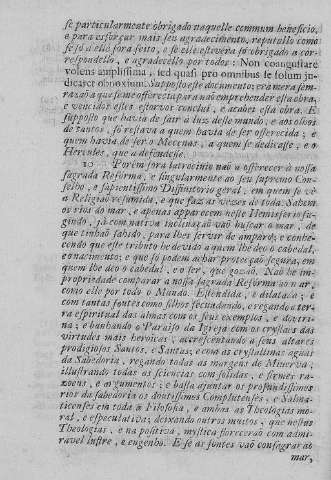 se particularmente obrigado naquelle commum beneficio,
e para esforçar mais seu agradecimento, reputello como
se só a elle fora feito, e se elle estivera só obrigado a cor-
respondello, e agradecello por todos: Non coangustare
volens amplissima, sed quasi pro omnibus se solum ju-
dicaret obnoxium. Supposto este documento; era mera sem-
razaõ a que se me offerecia para naõ emprehender esta obra,
e vencidos estes estorvos conclui, e acabei esta obra. E
supposto que havia de sair a luz deste mundo, e aos olhos
de tantos, só restava a quem havia de ser offerecida; e
quem havia de ser o Mecenas, a quem se dedicasse, e o
Hercules, que a defendesse.
10 Porém fora latrocinio naõ a offerecer à nossa
sagrada Reforma, e singularmente ao seu supremo Con-
selho, e sapientissimo Diffinitorio geral, em quem se vê
a Religiaõ resumida, e que faz as vezes de toda. Sahem
os rios do mar, e apenas apparecem neste Hemisferio su-
gindo, já com nativa inclinaçaõ vaõ buscar o mar, de
que tinhaõ sahido, para lhes servir de amparo; e conhe-
cendo que este tributo he devido a quem lhe deo o cabedal,
e o nacimento; e que só podem achar protecçaõ segura, em
quem lhe deo o cabedal, e o ser, que gozaõ. Naõ he im-
propriedade comparar a nossa sagrada Reforma ao mar,
como elle por todo o Mundo. Estendida, e dilatada; e
com tantas fontes como filhos fecundando, e regando a ter-
ra espiritual das almas com os seus exemplos, e doutri-
na; e banhando o Paraiso da Igreja com os crystaes das
virtudes mais heroicas; accrescentando a seus altares
prodigiosos Santos, e Santas; e com as crystallinas aguas
da Sabedoria, regando todas as margens de Minerva;
illustrando todas as sciencias com solidas, e firmes ra-
zoens, e argumentos; e basta ajuntar os profundissimos
rios da sabedoria os doutissimos Complutenses, e Salma-
ticenses em toda a Filosofia, e ambas as Theologias mo-
ral, e especulativa; deixando outros muitos, que nestas
Theologias, e na positiva, mystica florecerão com admi-
ravel lustre, e engenho. E se as fontes vaõ consagrar ao
mar,